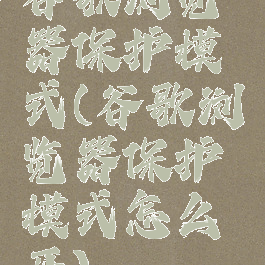 谷歌浏览
器保护模
式(谷歌浏
览器保护
模式怎么
开)